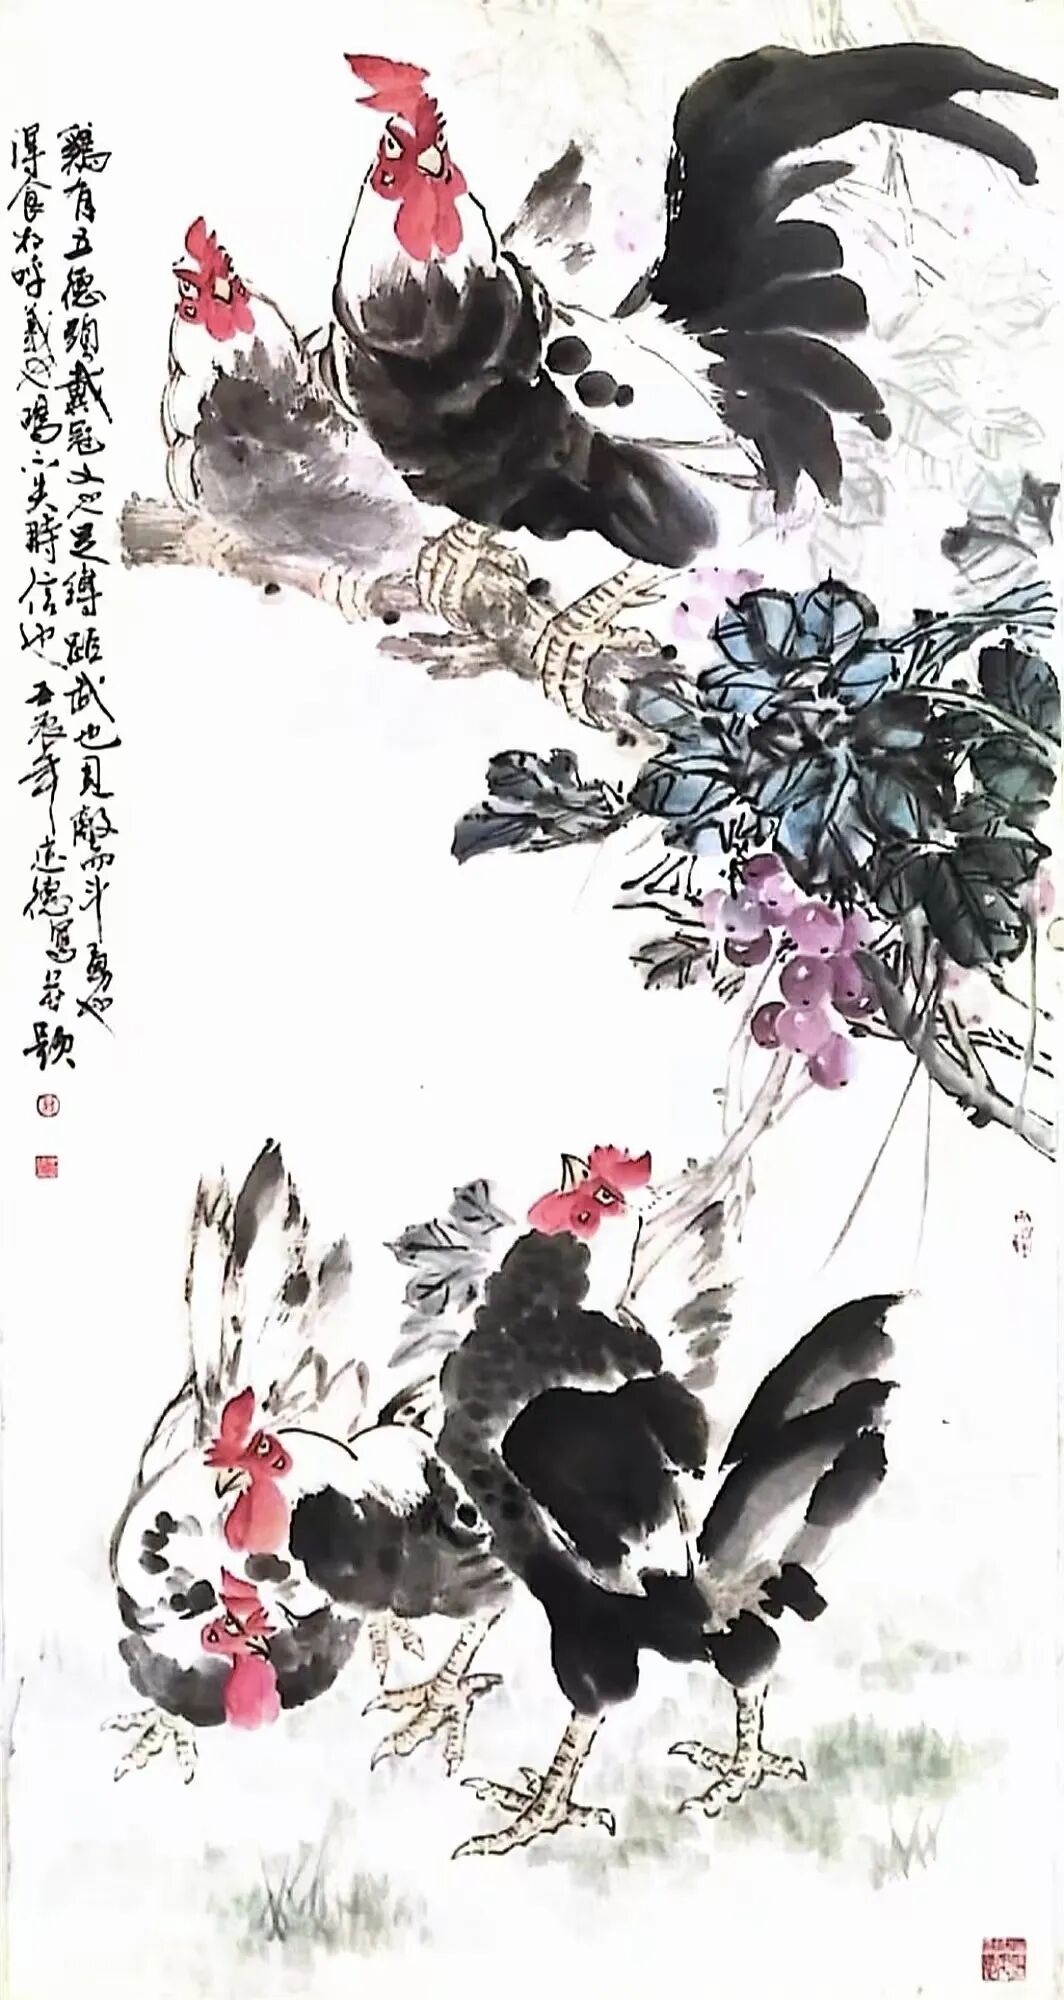 鷄有五德頭戴冠文也足搏距武也見敵而斗勇也
得食相呼義也鳴不失時信也 壬辰年 志德寫并題